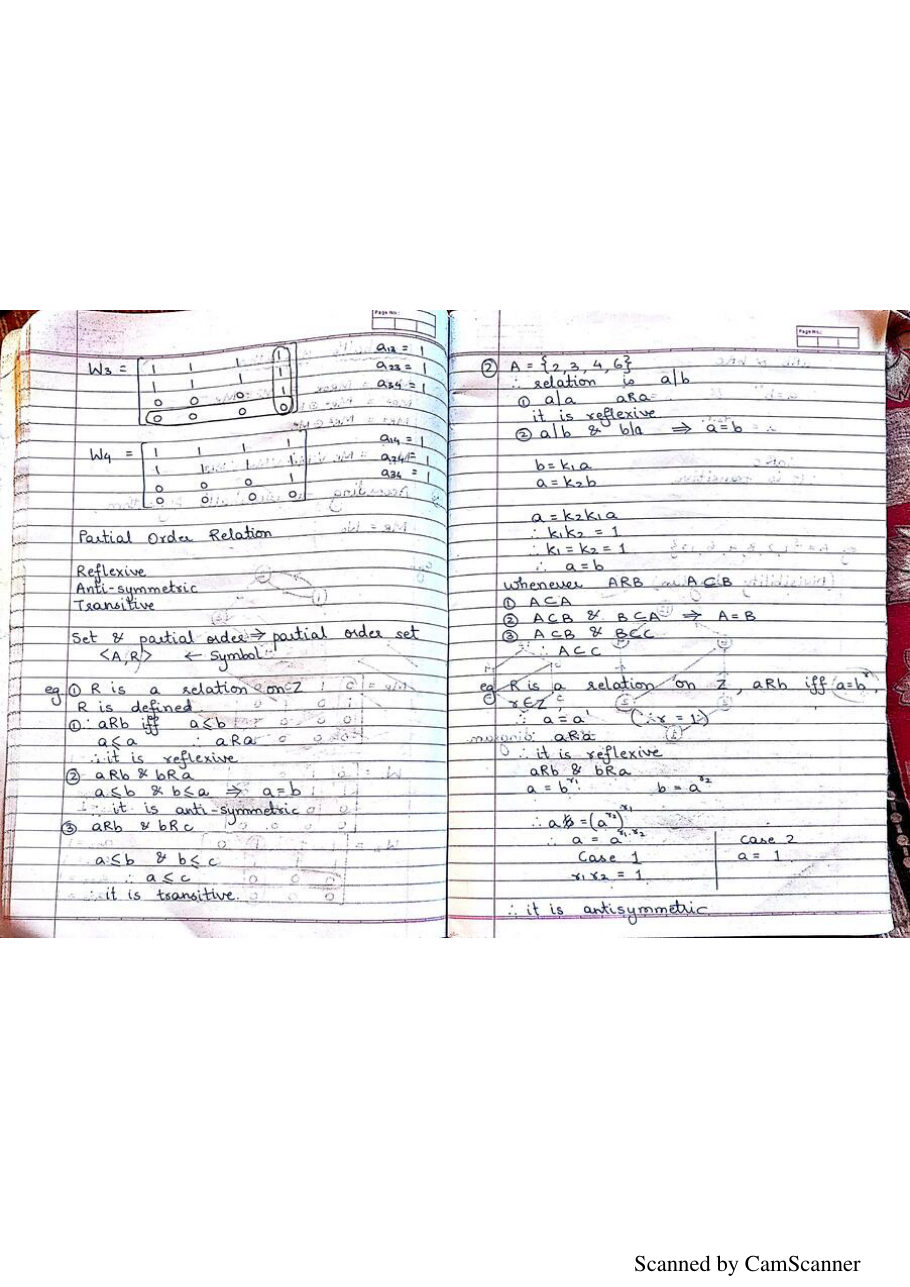 Page No.:
W3 =
1 1 1 1
1 1 1 1
0 0 0 1
0 0 0 0
a13 = 1
a23 = 1
a34 = 1
W4 =
1 1 1 1
1 1 1 1
0 0 0 1
0 0 0 0
a14 = 1
a24 = 1
a34 = 1
Partial Order Relation
Reflexive
Anti-symmetric
Transitive
Set & partial order → partial order set
<A,R> ← Symbol
eg ① R is a relation on Z
R is defined
①∴ aRb iff a≤b
a≤a ∴ aRa
∴ it is reflexive
② aRb & bRa
a≤b & b≤a ⇒ a=b
∴ it is anti-symmetric
③ aRb & bRc
a≤b & b≤c
∴ a≤c
∴ it is transitive.
Page No.:
② A = {2,3,4,6}
∴ relation is a|b
① a|a aRa
it is reflexive
② a|b & b|a ⇒ a=b
b = k1a
a = k2b
a = k2k1a
∴ k1k2 = 1
∴ k1 = k2 = 1
∴ a=b
Whenever ARB A⊆B
① A⊆A
② A⊆B & B⊆A ⇒ A=B
③ A⊆B & B⊆C
∴ A⊆C
eg R is a relation on Z, aRb iff (a=b^r,
r∈Z,
∴ a = a^1 (∵ r = 1)
∴ aRa
∴ it is reflexive
aRb & bRa
a = b^r1 b = a^r2
∴ a = (a^r2)^r1
∴ a = a^r1.r2
Case 1
r1r2 = 1
Case 2
a = 1
∴ it is antisymmetric
Scanned by CamScanner